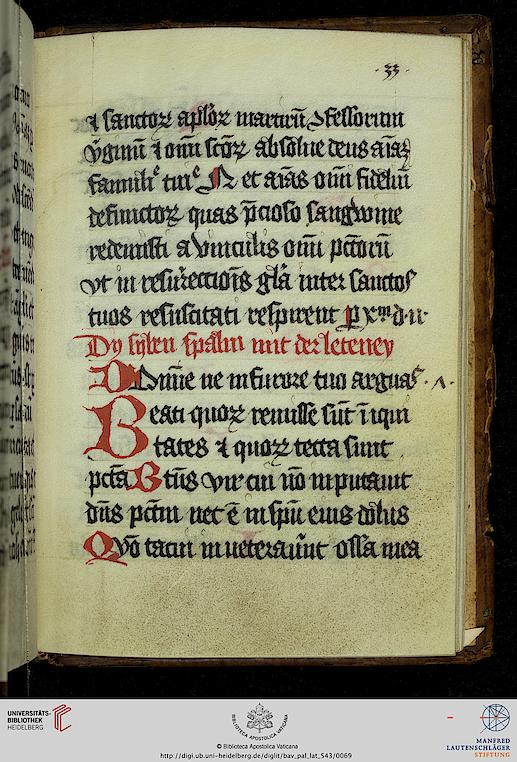 ·33·
⁊ sanctoꝝ aplōꝝ martirū ꝯfessorum
v̄ginū ⁊ oniū sctōꝝ absolue deus aīaꝫ
famuli tui N et aīas oniū fideliū
defunctoꝝ quas p̄cioso sangwine
redemisti a vinculis oniū pctōrū
vt in resurrectiōis glā inter sanctos
tuos resuscitati respirent ꝑ xp̄m d n
Dy syben spalm mit der leteney
Domine ne in furore tuo arguas
Beati quoꝝ remisse sūt īiqui
tates ⁊ quoꝝ tecta sunt
pctā Btūs vir cui nō inputauit
dūs pctm nec ē in spū eius dolus
Qvō tacui inueterauūt ossa mea
UNIVERSITÄTS-
BIBLIOTHEK
HEIDELBERG
BIBLIOTECA APOSTOLICA VATICANA
© Biblioteca Apostolica Vaticana
http://digi.ub.uni-heidelberg.de/diglit/bav_pal_lat_543/0069
MANFRED
LAUTENSCHLÄGER
STIFTUNG